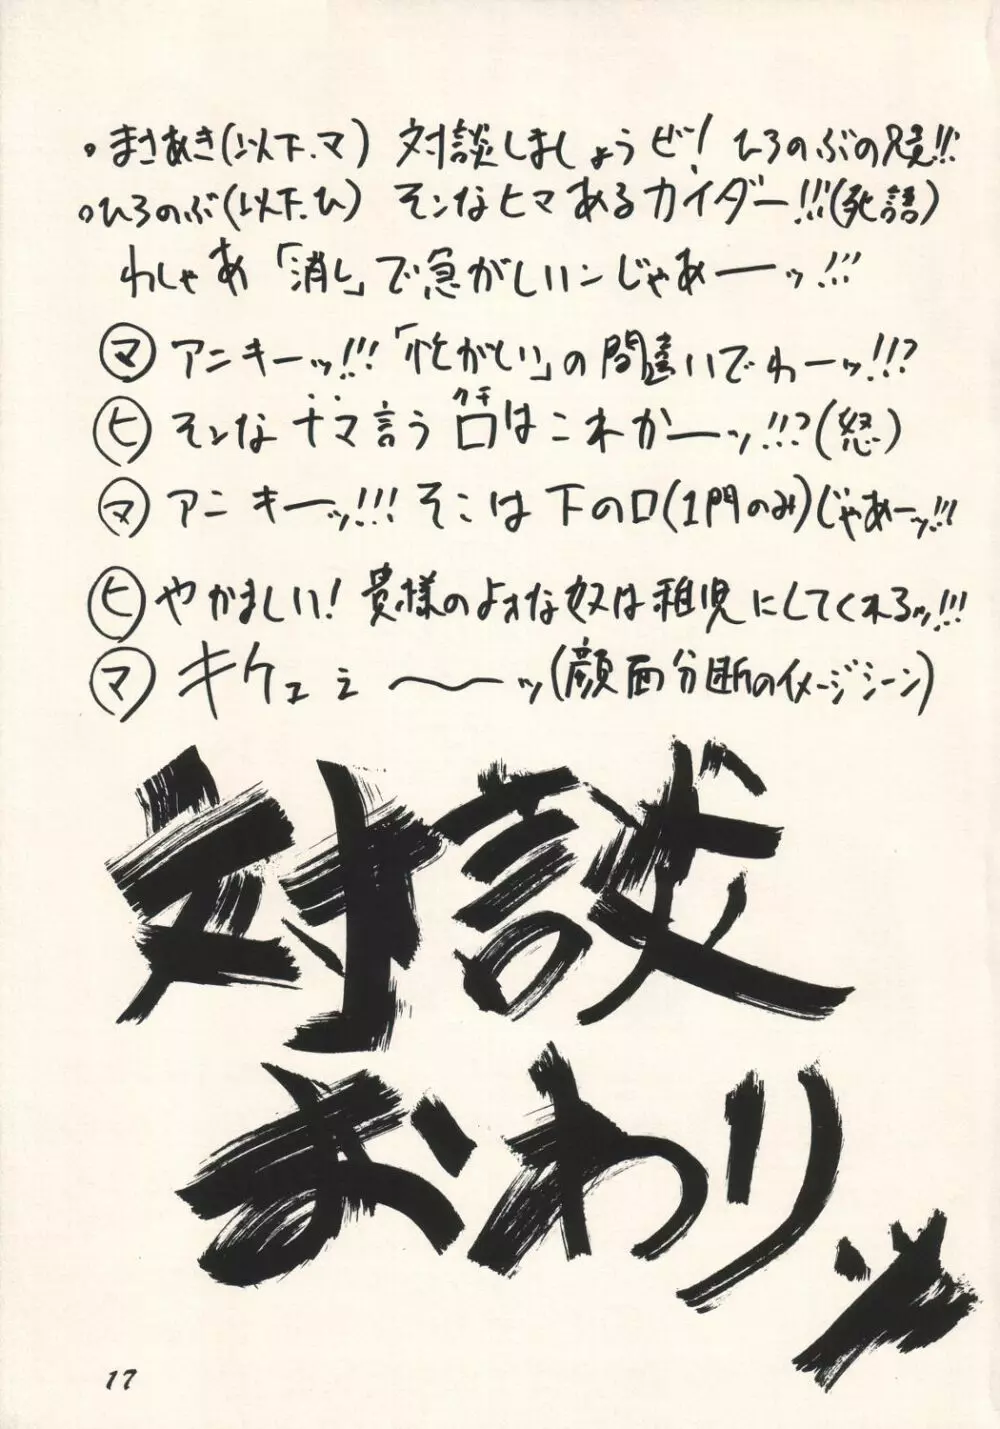 ○まさあき(以下.マ) 対談しましょうピ! ひろのぶの兄!!!
○ひろのぶ(以下.ひ) そンなヒマあるカイダー!!!(死語)
わしゃあ「消し」で急がしいンじゃあーーッ!!!
マ アニキーッ!!!「忙がしい」の間違いでわーッ!!?
ヒ そンなナマ言う口クチはこれかーーッ!!?(怒)
マ アニキーッ!!! そこは下の口(1門のみ)じゃあーッ!!!
ヒ やかましい! 貴様のよオな奴は稚児にしてくれるッ!!!
マ キケェェ〜〜ッ(顔面分断のイメージシーン)
対談
おわりッ
17